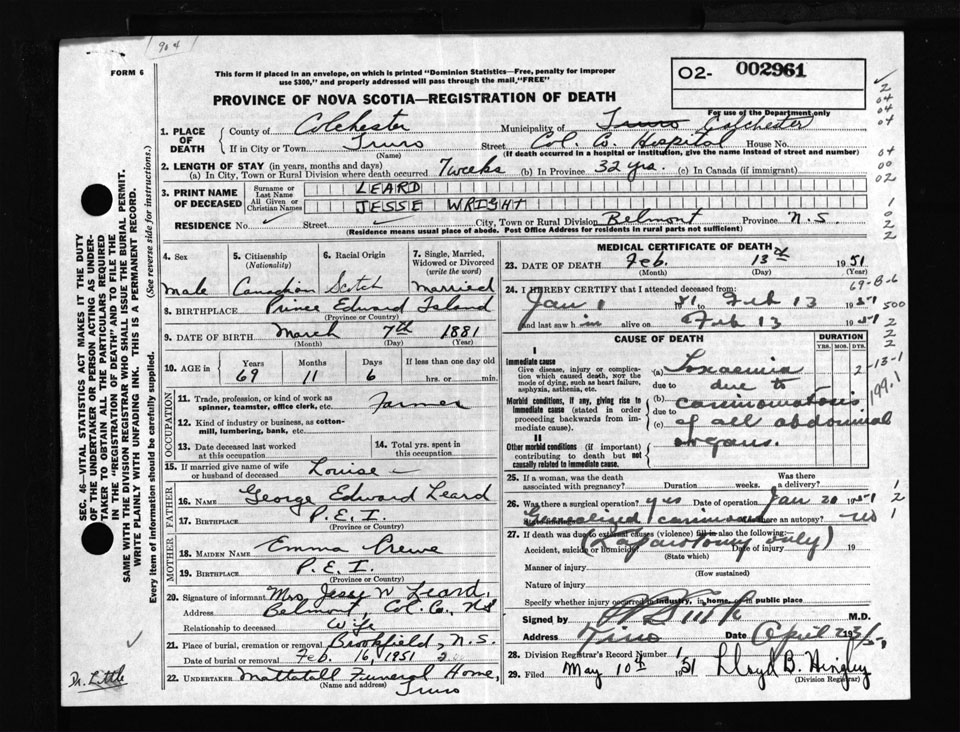 904
FORM 6
This form if placed in an envelope, on which is printed "Dominion Statistics—Free, penalty for improper
use $300," and properly addressed will pass through the mail, "FREE"
O2- 002961
For use of the Department only
PROVINCE OF NOVA SCOTIA—REGISTRATION OF DEATH
1. PLACE OF DEATH
County of Colchester Municipality of Truro Colchester
If in City or Town Truro Street Col. Co. Hospital House No.
(Name) (If death occurred in a hospital or institution, give the name instead of street and number)
2. LENGTH OF STAY (in years, months and days)
(a) In City, Town or Rural Division where death occurred 7 weeks (b) In Province 32 yrs. (c) In Canada (if immigrant)
3. PRINT NAME OF DECEASED
Surname or Last Name LEARD
All Given or Christian Names JESSE WRIGHT
RESIDENCE No. Street City, Town or Rural Division Belmont Province N.S.
(Residence means usual place of abode. Post Office Address for residents in rural parts not sufficient)
4. Sex
male
5. Citizenship
(Nationality)
Canadian
6. Racial Origin
Scotch
7. Single, Married,
Widowed or Divorced
(write the word)
Married
8. BIRTHPLACE Prince Edward Island
(Province or Country)
9. DATE OF BIRTH March 7th 1881
(Month) (Day) (Year)
10. AGE in Years Months Days If less than one day old
69 11 6 hrs. or min.
OCCUPATION
11. Trade, profession, or kind of work as
spinner, teamster, office clerk, etc. Farmer
12. Kind of industry or business, as cotton-
mill, lumbering, bank, etc.
13. Date deceased last worked
at this occupation
14. Total yrs. spent in
this occupation
15. If married give name of wife
or husband of deceased Louise
FATHER
16. Name George Edward Leard
17. Birthplace P.E.I.
(Province or Country)
MOTHER
18. MAIDEN NAME Emma
19. BIRTHPLACE P.E.I.
(Province or Country)
20. Signature of informant Mrs. Jesse W. Leard,
Address Belmont, Col. Co., N.S
Relationship to deceased Wife
21. Place of burial, cremation or removal Brookfield, N.S.
Date of burial or removal Feb. 16, 1951
22. UNDERTAKER Mattatall Funeral Home,
(Name and address) Truro
MEDICAL CERTIFICATE OF DEATH
23. DATE OF DEATH Feb. 13th 1951
(Month) (Day) (Year)
69-B-6
24. I HEREBY CERTIFY that I attended deceased from:
Jan 1 51 to Feb 13 1951
and last saw him alive on Feb 13 1951
500
CAUSE OF DEATH
DURATION
YRS. MOS. DYS.
I
Immediate cause
Give disease, injury or complica-
tion which caused death, NOT the
mode of dying, such as heart failure,
asphyxia, asthenia, etc.
(a) Toxaemia 2
due to due to
Morbid conditions, if any, giving rise to
immediate cause (stated in order
proceeding backwards from imme-
diate cause).
(b) carcinomatosis
due to
(c) of all abdominal
organs.
II
Other morbid conditions (if important)
contributing to death but not
causally related to immediate cause.
-13-1
199.1
25. If a woman, was the death
associated with pregnancy? Duration weeks. Was there
a delivery?
26. Was there a surgical operation? yes Date of operation Jan 20 1951
State findings Generalized Was there an autopsy? no
27. If death was due to external causes (violence) fill in also the following:
(Laparotomy only)
Accident, suicide or homicide Date of injury 19
(State which)
Manner of injury
(How sustained)
Nature of injury
Specify whether injury occurred in industry, in home, or in public place
Signed by M.D.
Address Truro Date April 2
28. Division Registrar's Record Number 1
29. Filed May 10th 1951 Lloyd B. Hingley
(Division Registrar)
SEC. 46—VITAL STATISTICS ACT MAKES IT THE DUTY
OF THE UNDERTAKER OR PERSON ACTING AS UNDER-
TAKER TO OBTAIN ALL THE PARTICULARS REQUIRED
IN THE "REGISTRATION OF DEATH" AND TO FILE THE
SAME WITH THE DIVISION REGISTRAR WHO SHALL ISSUE THE BURIAL PERMIT.
WRITE PLAINLY WITH UNFADING INK. THIS IS A PERMANENT RECORD.
Every item of information should be carefully supplied. (See reverse side for instructions.)
Dr. Little
2
04
04
04
04
00
02
1
0
2
2
2
2
2
1
2
1